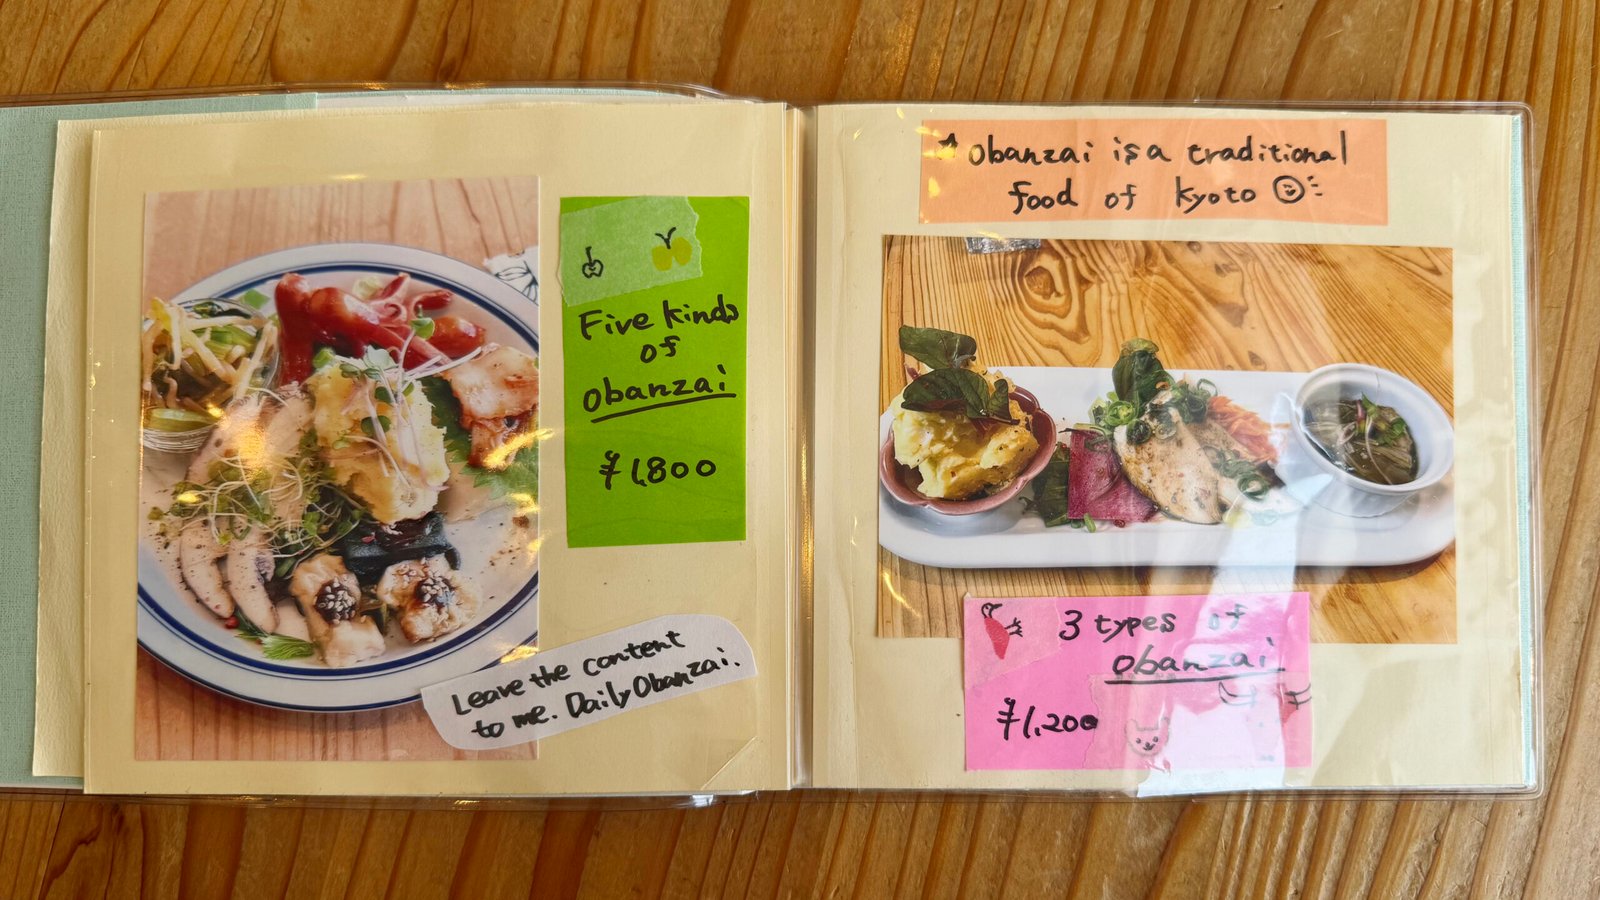 Five kinds
of
obanzai
¥1,800
Leave the content
to me. Daily Obanzai.
obanzai is a traditional
food of kyoto
3 types of
obanzai
¥1,200